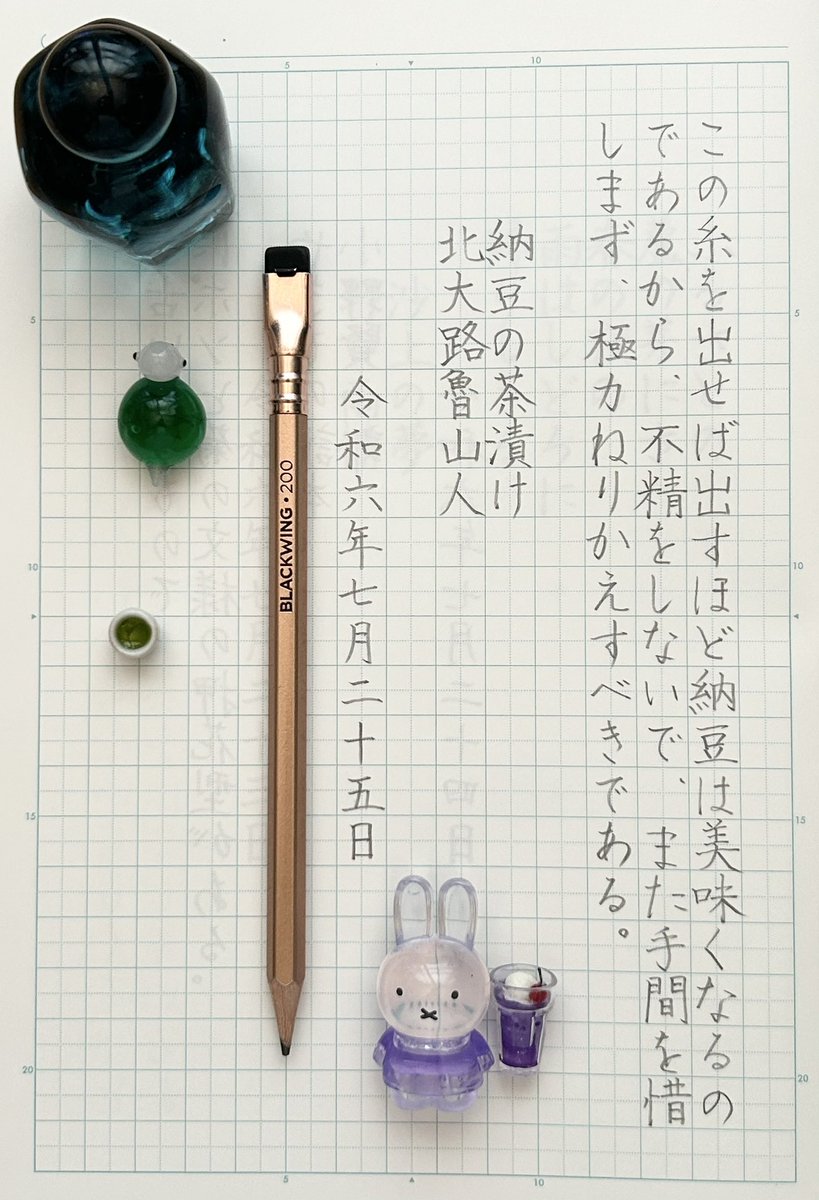 この糸を出せば出すほど納豆は美味くなるの
であるから、不精をしないで、また手間を惜
しまず、極力ねりかえすべきである。
納豆の茶漬け
北大路魯山人
令和六年七月二十五日
BLACKWING・200
5
10
5
10
15
20
5
10
15
20
5
10